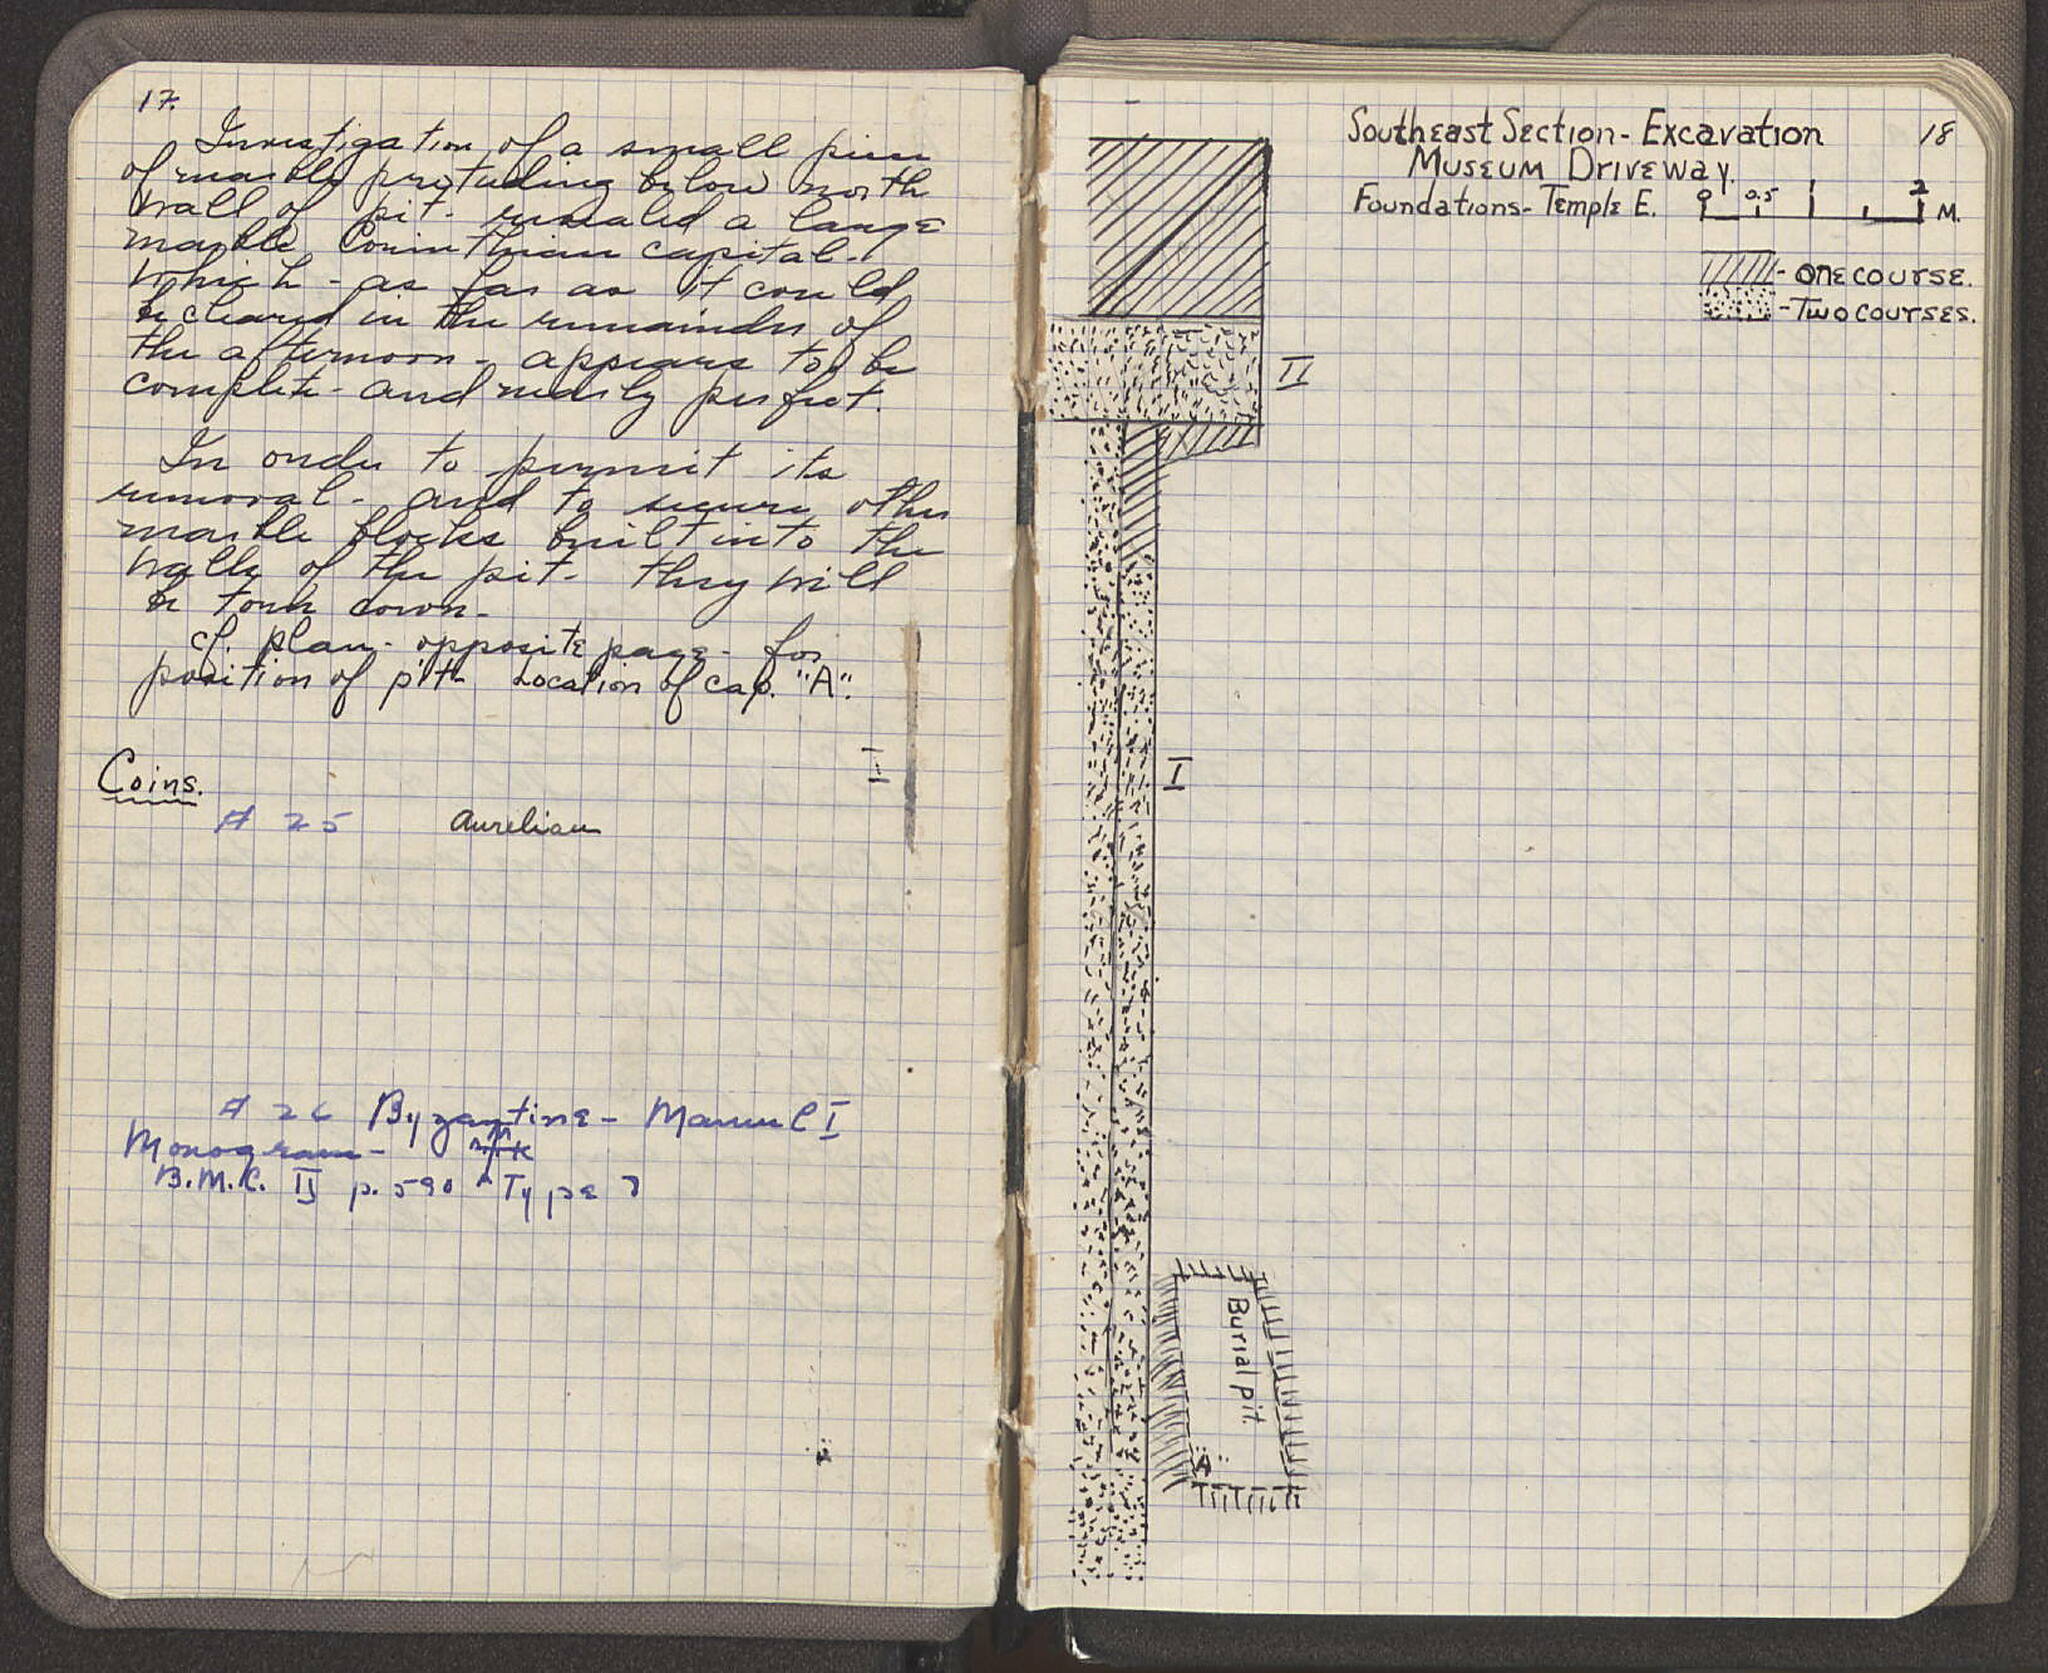 17.
Investigation of a small piece
of marble protuding below north
wall of pit- revealed a large
marble Corinthian capital-
which - as far as it could
be cleared in the remainder of
the afternoon - appears to be
complete - and nearly perfect.
In order to permit its
removal - and to secure other
marble blocks built into the
walls of the pit - they will
be torn down -
cf. plan - opposite page - for
position of pit Location of cap. "A".
I
Coins.
# 25 Aurelian
# 26 Byzantine - Manuel I
Monogram -
B.M.C. II p. 590 Type
18
Southeast Section - Excavation
Museum Driveway.
Foundations - Temple E.
0 0.5 1 2 M.
- one course.
- Two courses.
II
I
Burial pit.
"A"